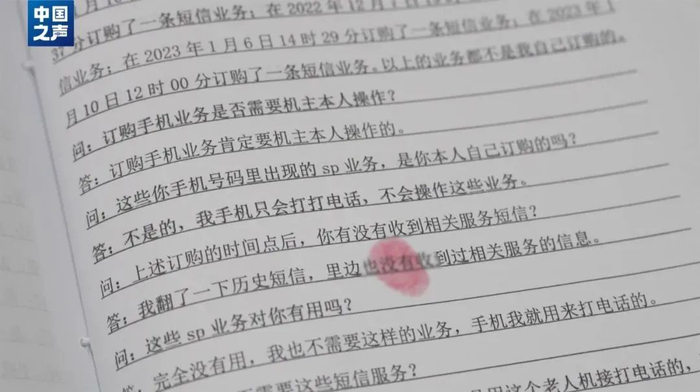 中国之声
37 分订购了一条短信业务；在 2022 年 12 月
信业务；在 2023 年 1 月 6 日 14 时 29 分订购了一条短信业务；在 2023 年 1
月 10 日 12 时 00 分订购了一条短信业务。以上的业务都不是我自己订购的。
问：订购手机业务是否需要机主本人操作？
答：订购手机业务肯定要机主本人操作的。
问：这些你手机号码里出现的 sp 业务，是你本人自己订购的吗？
答：不是的，我手机只会打打电话，不会操作这些业务。
问：上述订购的时间点后，你有没有收到相关服务短信？
答：我翻了一下历史短信，里边也没有收到过相关服务的信息。
问：这些 sp 业务对你有用吗？
答：完全没有用，我也不需要这样的业务，手机我就用来打电话的。
需要这些短信服务？
用这个老人机接打电话的，